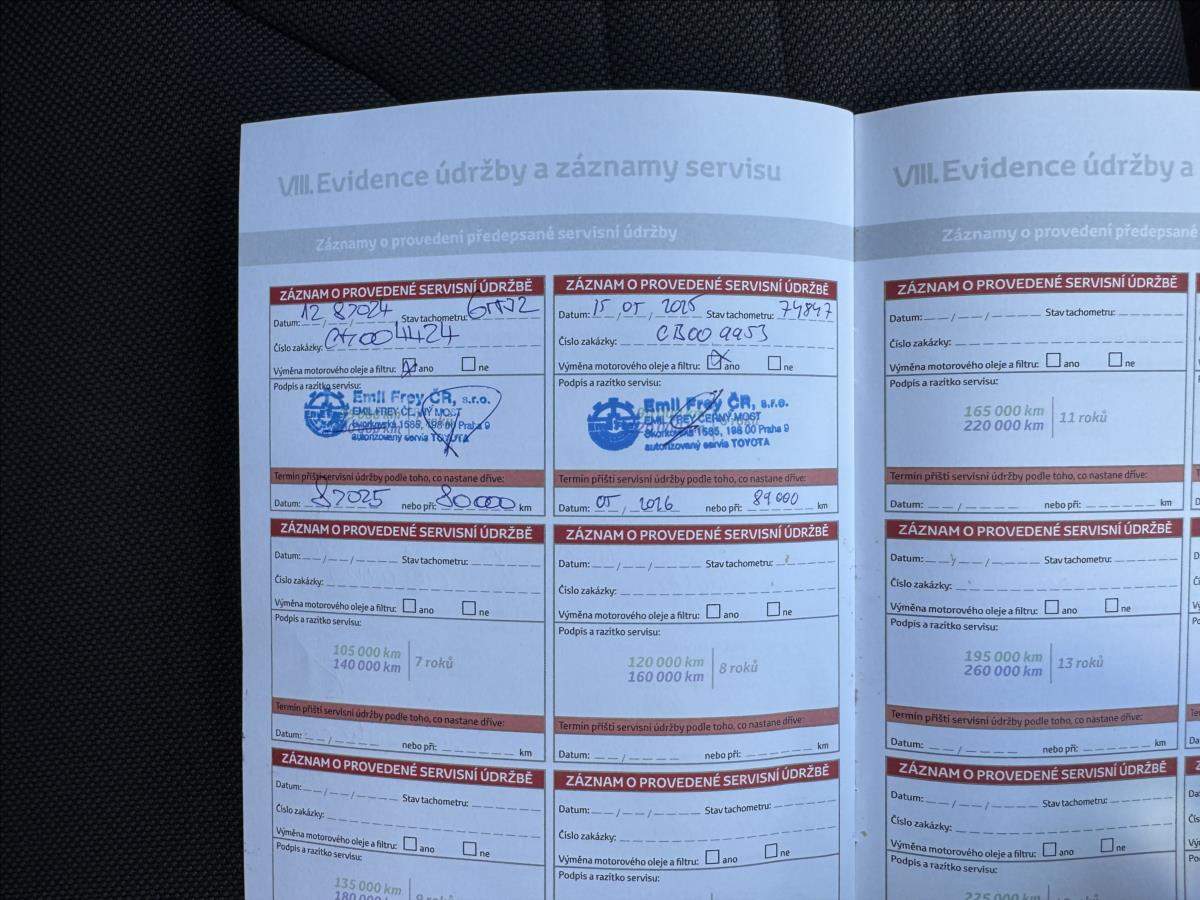 VIII. Evidence údržby a záznamy servisu
Záznamy o provedení předepsané servisní údržby
ZÁZNAM O PROVEDENÉ SERVISNÍ ÚDRŽBĚ
Datum: 12 8 2024 Stav tachometru:
Číslo zakázky:
Výměna motorového oleje a filtru: ano ne
Podpis a razítko servisu:
Emil Frey ČR, s.r.o.
EMIL FREY ČERNÝ MOST
Skorkovská 1585, 198 00 Praha 9
autorizovaný servis TOYOTA
Termín příští servisní údržby podle toho, co nastane dříve:
Datum: 8 2025 nebo při: 80000 km
ZÁZNAM O PROVEDENÉ SERVISNÍ ÚDRŽBĚ
Datum: 15 05 2025 Stav tachometru: 74847
Číslo zakázky: CB00 9953
Výměna motorového oleje a filtru: ano ne
Podpis a razítko servisu:
Emil Frey ČR, s.r.o.
EMIL FREY ČERNÝ MOST
Skorkovská 1585, 198 00 Praha 9
autorizovaný servis TOYOTA
Termín příští servisní údržby podle toho, co nastane dříve:
Datum: 05 / 2026 nebo při: 89 000 km
ZÁZNAM O PROVEDENÉ SERVISNÍ ÚDRŽBĚ
Datum: __ / __ / ____ Stav tachometru:
Číslo zakázky:
Výměna motorového oleje a filtru: ano ne
Podpis a razítko servisu:
105 000 km
140 000 km
7 roků
Termín příští servisní údržby podle toho, co nastane dříve:
Datum: __ / ____ nebo při: km
ZÁZNAM O PROVEDENÉ SERVISNÍ ÚDRŽBĚ
Datum: __ / __ / ____ Stav tachometru:
Číslo zakázky:
Výměna motorového oleje a filtru: ano ne
Podpis a razítko servisu:
120 000 km
160 000 km
8 roků
Termín příští servisní údržby podle toho, co nastane dříve:
Datum: __ / ____ nebo při: km
ZÁZNAM O PROVEDENÉ SERVISNÍ ÚDRŽBĚ
Datum: __ / __ / ____ Stav tachometru:
Číslo zakázky:
Výměna motorového oleje a filtru: ano ne
Podpis a razítko servisu:
135 000 km
180 000 km
ZÁZNAM O PROVEDENÉ SERVISNÍ ÚDRŽBĚ
Datum: __ / __ / ____ Stav tachometru:
Číslo zakázky:
Výměna motorového oleje a filtru: ano ne
Podpis a razítko servisu:
VIII. Evidence údržby a
Záznamy o provedení předepsané
ZÁZNAM O PROVEDENÉ SERVISNÍ ÚDRŽBĚ
Datum: __ / __ / ____ Stav tachometru:
Číslo zakázky:
Výměna motorového oleje a filtru: ano ne
Podpis a razítko servisu:
165 000 km
220 000 km
11 roků
Termín příští servisní údržby podle toho, co nastane dříve:
Datum: __ / ____ nebo při: km
ZÁZNAM O PROVEDENÉ SERVISNÍ ÚDRŽBĚ
Datum: __ / __ / ____ Stav tachometru:
Číslo zakázky:
Výměna motorového oleje a filtru: ano ne
Podpis a razítko servisu:
195 000 km
260 000 km
13 roků
Termín příští servisní údržby podle toho, co nastane dříve:
Datum: __ / ____ nebo při: km
ZÁZNAM O PROVEDENÉ SERVISNÍ ÚDRŽBĚ
Datum: __ / __ / ____ Stav tachometru:
Číslo zakázky:
Výměna motorového oleje a filtru: ano ne
Podpis a razítko servisu:
225 000 km